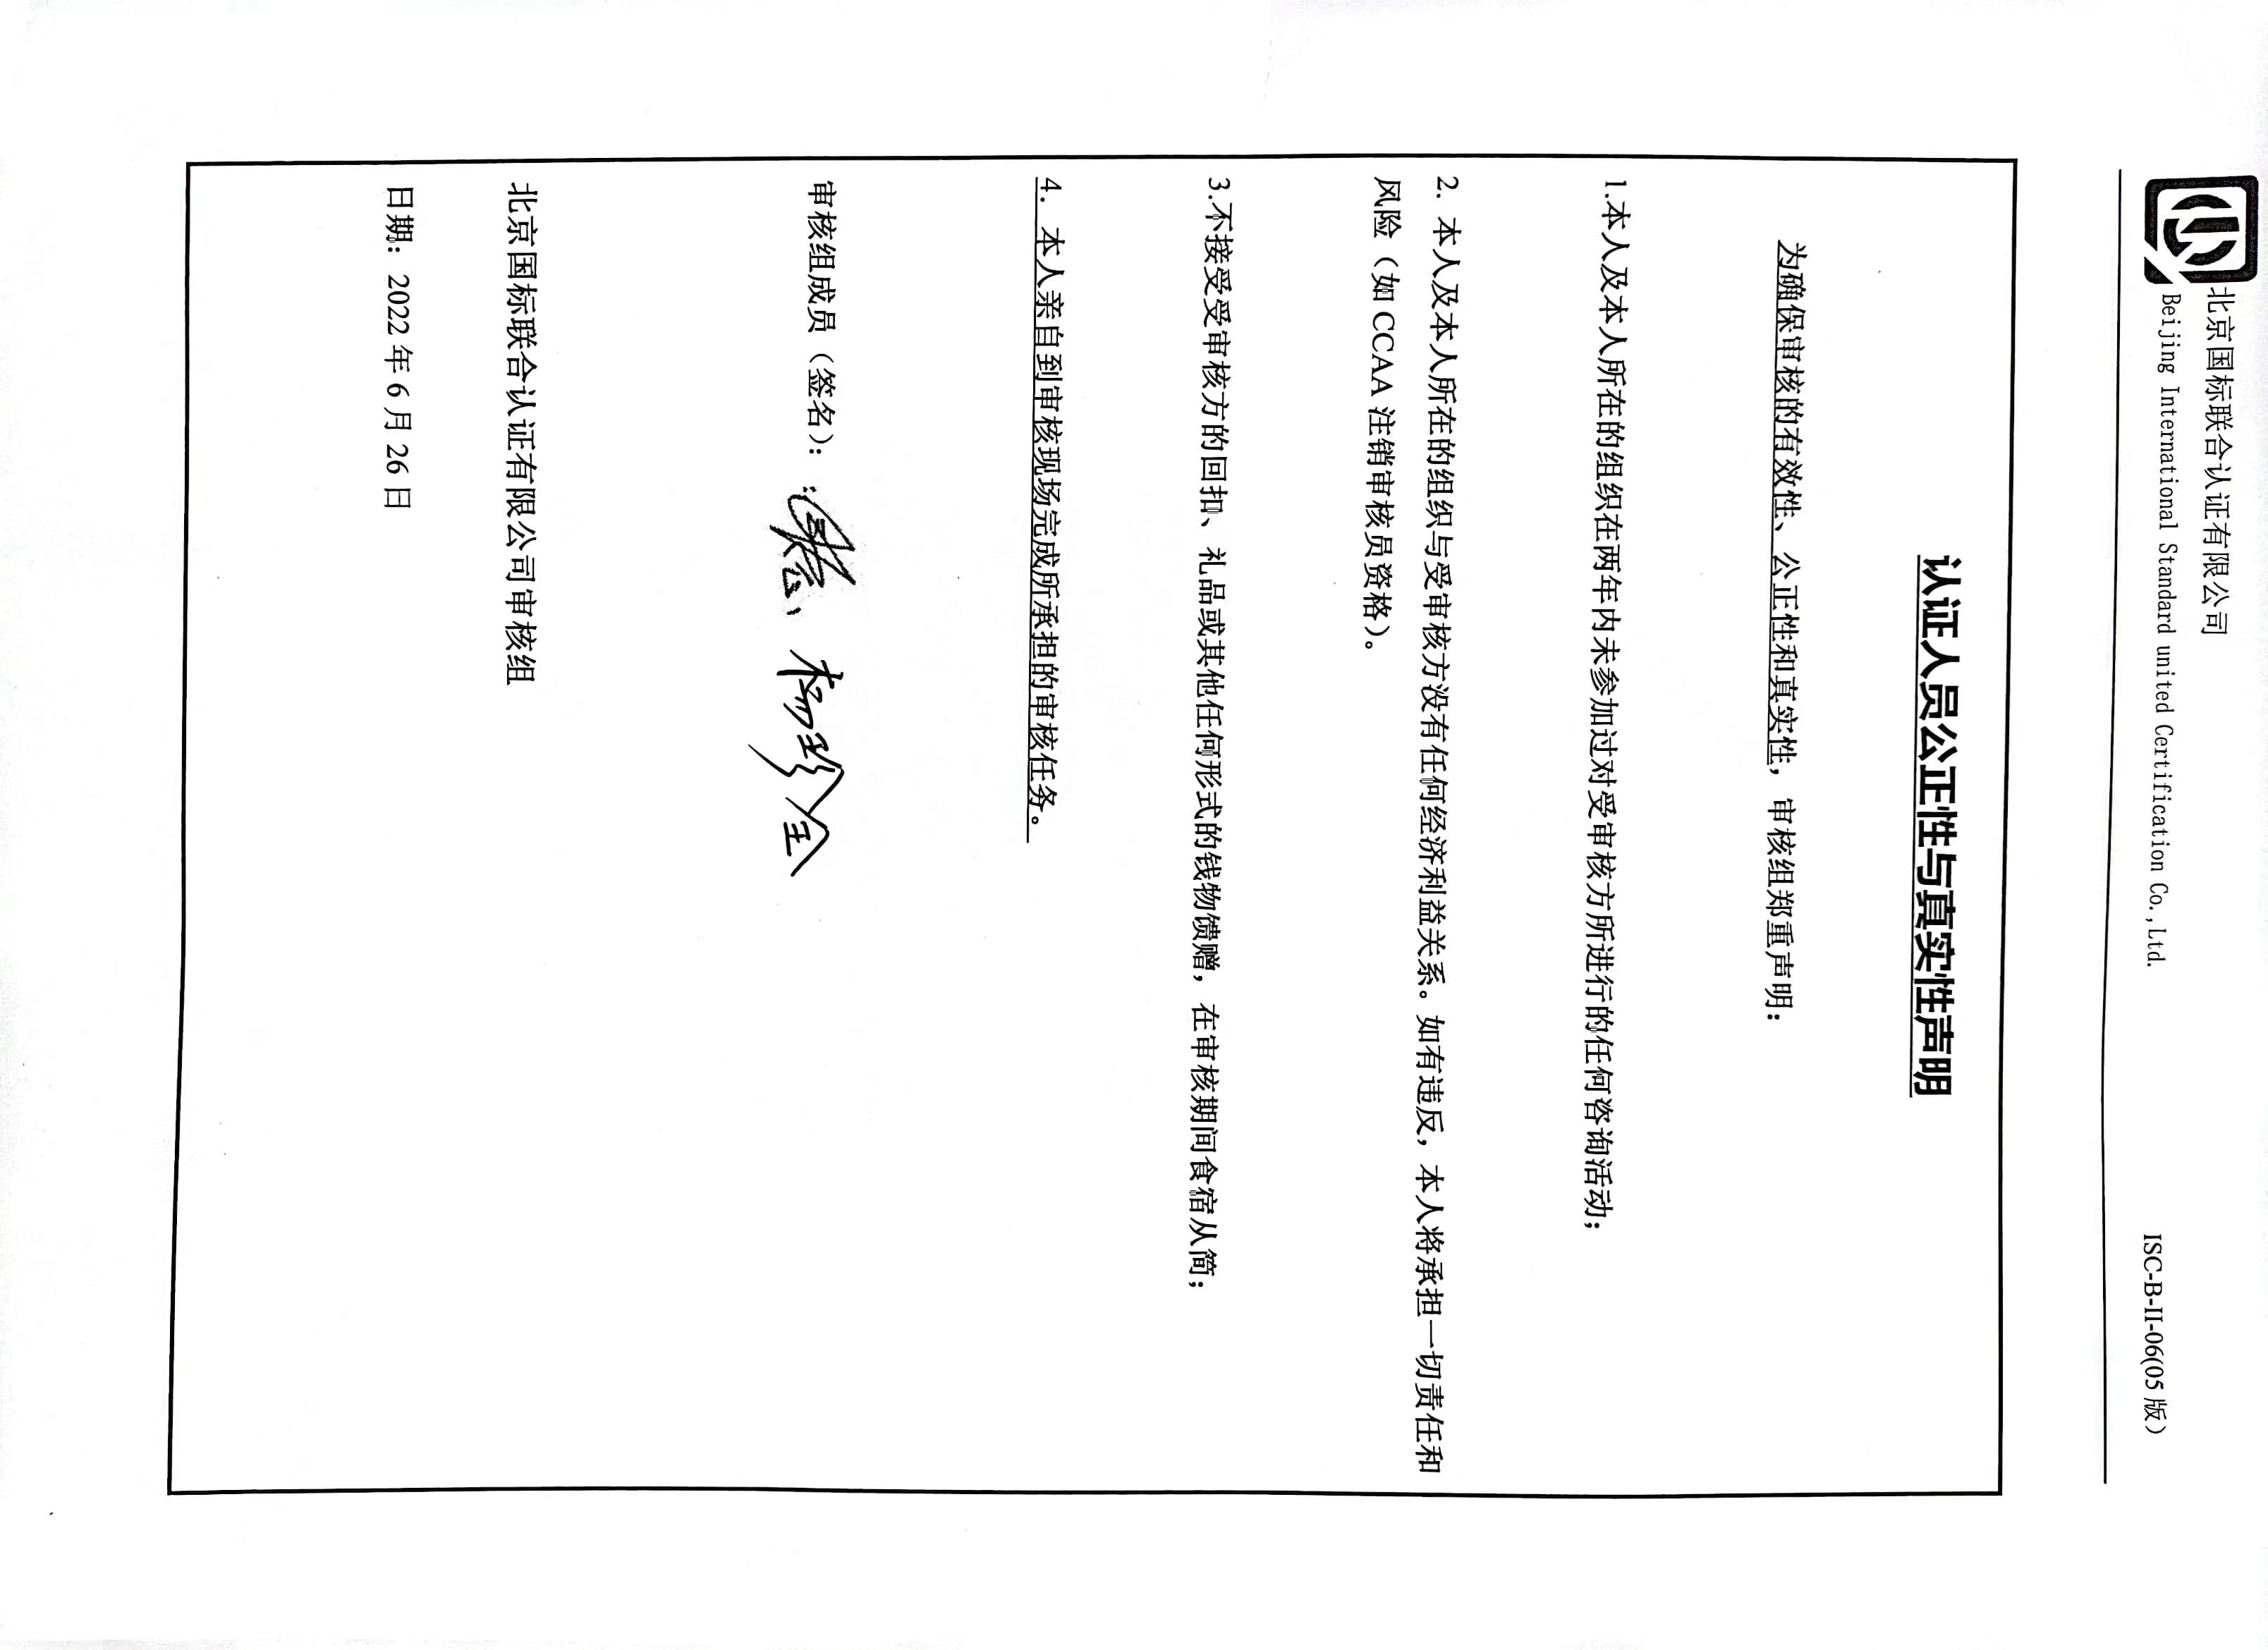 北京国标联合认证有限公司
Beijing International Standard united Certification Co.,Ltd.
ISC-B-II-06(05 版)
认证人员公正性与真实性声明
为确保审核的有效性、公正性和真实性，审核组郑重声明：
1.本人及本人所在的组织在两年内未参加过对受审核方所进行的任何咨询活动；
2. 本人及本人所在的组织与受审核方没有任何经济利益关系。如有违反，本人将承担一切责任和
风险（如 CCAA 注销审核员资格）。
3.不接受受审核方的回扣、礼品或其他任何形式的钱物馈赠，在审核期间食宿从简；
4. 本人亲自到审核现场完成所承担的审核任务。
审核组成员（签名）：
北京国标联合认证有限公司审核组
日期：2022 年 6 月 26 日